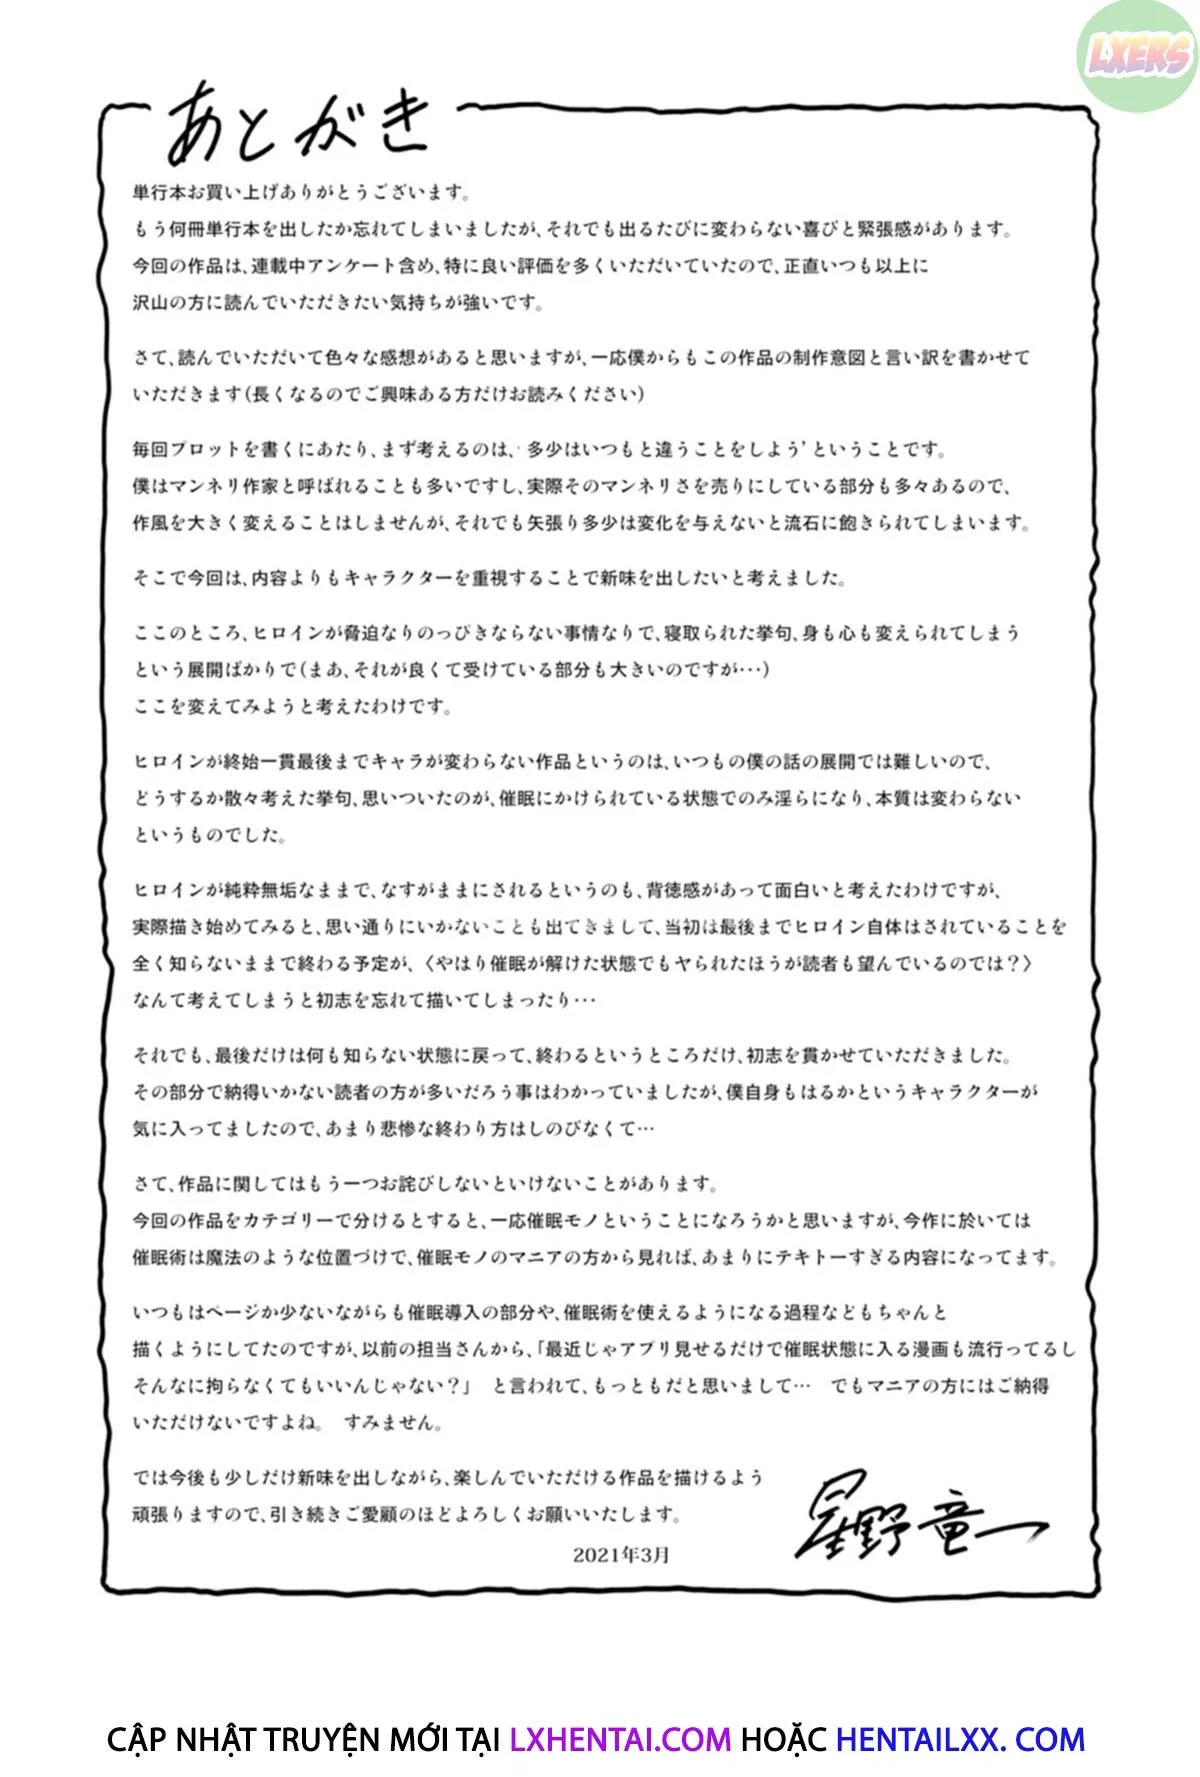 LXERS
あとがき
単行本お買い上げありがとうございます。
もう何冊単行本を出したか忘れてしまいましたが、それでも出るたびに変わらない喜びと緊張感があります。
今回の作品は、連載中アンケート含め、特に良い評価を多くいただいていたので、正直いつも以上に
沢山の方に読んでいただきたい気持ちが強いです。
さて、読んでいただいて色々な感想があると思いますが、一応僕からもこの作品の制作意図と言い訳を書かせて
いただきます(長くなるのでご興味ある方だけお読みください)
毎回プロットを書くにあたり、まず考えるのは、‘多少はいつもと違うことをしよう’ということです。
僕はマンネリ作家と呼ばれることも多いですし、実際そのマンネリさを売りにしている部分も多々あるので、
作風を大きく変えることはしませんが、それでも矢張り多少は変化を与えないと流石に飽きられてしまいます。
そこで今回は、内容よりもキャラクターを重視することで新味を出したいと考えました。
ここのところ、ヒロインが脅迫なりのっぴきならない事情なりで、寝取られた挙句、身も心も変えられてしまう
という展開ばかりで(まあ、それが良くて受けている部分も大きいのですが･･･)
ここを変えてみようと考えたわけです。
ヒロインが終始一貫最後までキャラが変わらない作品というのは、いつもの僕の話の展開では難しいので、
どうするか散々考えた挙句、思いついたのが、催眠にかけられている状態でのみ淫らになり、本質は変わらない
というものでした。
ヒロインが純粋無垢なままで、なすがままにされるというのも、背徳感があって面白いと考えたわけですが、
実際描き始めてみると、思い通りにいかないことも出てきまして、当初は最後までヒロイン自体はされていることを
全く知らないままで終わる予定が、〈やはり催眠が解けた状態でもヤられたほうが読者も望んでいるのでは？〉
なんて考えてしまうと初志を忘れて描いてしまったり･･･
それでも、最後だけは何も知らない状態に戻って、終わるというところだけ、初志を貫かせていただきました。
その部分で納得いかない読者の方が多いだろう事はわかっていましたが、僕自身もはるかというキャラクターが
気に入ってましたので、あまり悲惨な終わり方はしのびなくて･･･
さて、作品に関してはもう一つお詫びしないといけないことがあります。
今回の作品をカテゴリーで分けるとすると、一応催眠モノということになろうかと思いますが、今作に於いては
催眠術は魔法のような位置づけで、催眠モノのマニアの方から見れば、あまりにテキトーすぎる内容になってます。
いつもはページか少ないながらも催眠導入の部分や、催眠術を使えるようになる過程などもちゃんと
描くようにしてたのですが、以前の担当さんから、「最近じゃアプリ見せるだけで催眠状態に入る漫画も流行ってるし
そんなに拘らなくてもいいんじゃない？」　と言われて、もっともだと思いまして･･･　でもマニアの方にはご納得
いただけないですよね。　すみません。
では今後も少しだけ新味を出しながら、楽しんでいただける作品を描けるよう
頑張りますので、引き続きご愛顧のほどよろしくお願いいたします。
2021年3月
星野竜一
CẬP NHẬT TRUYỆN MỚI TẠI LXHENTAI.COM HOẶC HENTAILXX. COM